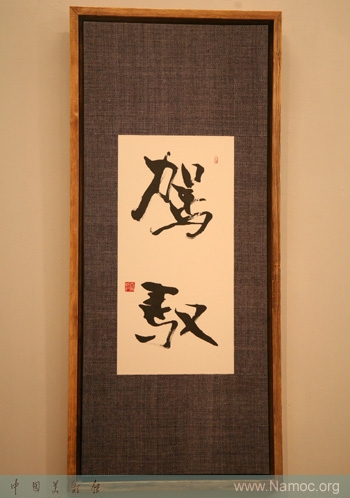 駕
馭
中国美术馆
www.Namoc.org